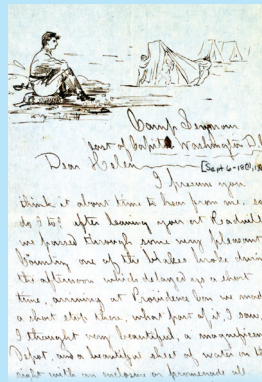 Camp Brynom
east of Capitol Washington D.C
[Sept 6-1861,
Dear Helen
I presume you
think it about time to hear from me, so
do I to! after leaving you at Readville
we passed through some very pleasant
Country one of the brakes broke during
the afternoon which delayed us a short
time, arriving at Providence Con we made
a short stop there, what part of it, I saw,
I thought very beautiful, a magnificent
Depot, and a beautiful sheet of water on the
right with an enclosure or promenade all